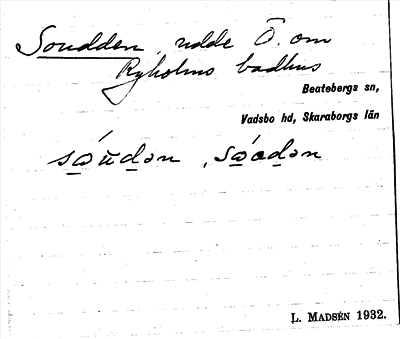 Soudden, udde Ö. om
Ryholms badhus
Beatebergs sn,
Vadsbo hd, Skaraborgs län
L. MADSÉN 1932.